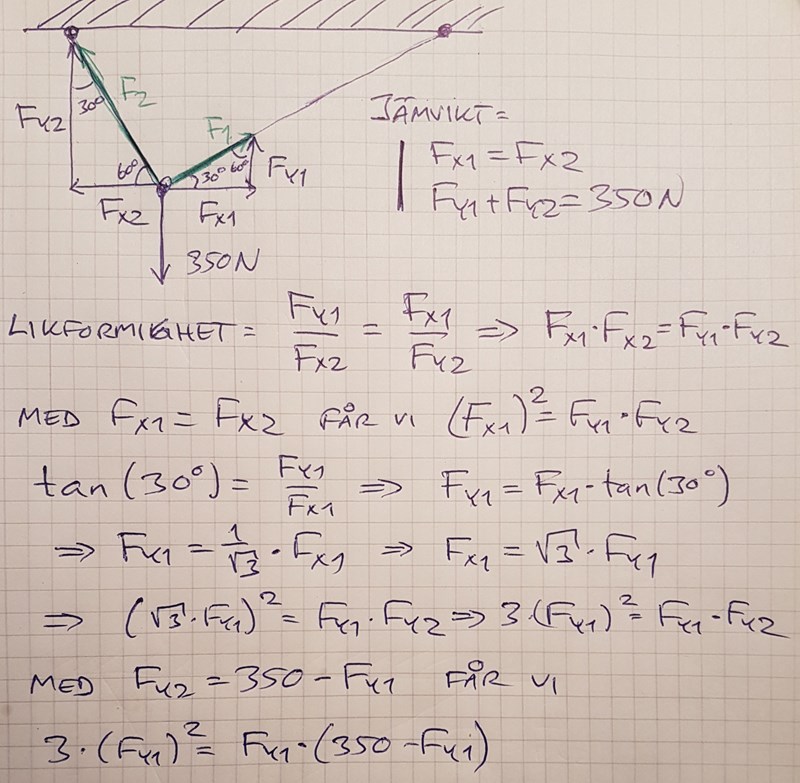 F₂
30°
F_Y2
F₁
60°
30° 60°
F_Y1
F_X2 F_X1
350N
JÄMVIKT =
F_X1 = F_X2
F_Y1 + F_Y2 = 350N
LIKFORMIGHET = F_Y1/F_X2 = F_X1/F_Y2 ⇒ F_X1 · F_X2 = F_Y1 · F_Y2
MED F_X1 = F_X2 FÅR VI (F_X1)² = F_Y1 · F_Y2
tan(30°) = F_Y1/F_X1 ⇒ F_Y1 = F_X1 · tan(30°)
⇒ F_Y1 = 1/√3 · F_X1 ⇒ F_X1 = √3 · F_Y1
⇒ (√3 · F_Y1)² = F_Y1 · F_Y2 ⇒ 3 · (F_Y1)² = F_Y1 · F_Y2
MED F_Y2 = 350 − F_Y1 FÅR VI
3 · (F_Y1)² = F_Y1 · (350 − F_Y1)